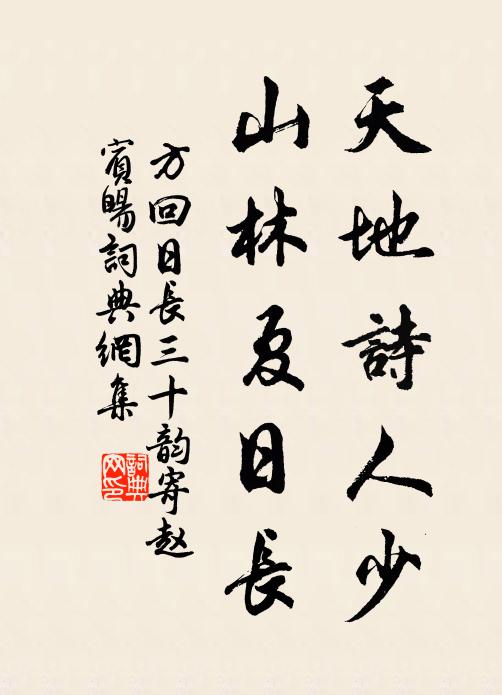 天地詩人少
山林夏日長
方回日長三十韵寄赵
賓暘詞典網集
詞典网印